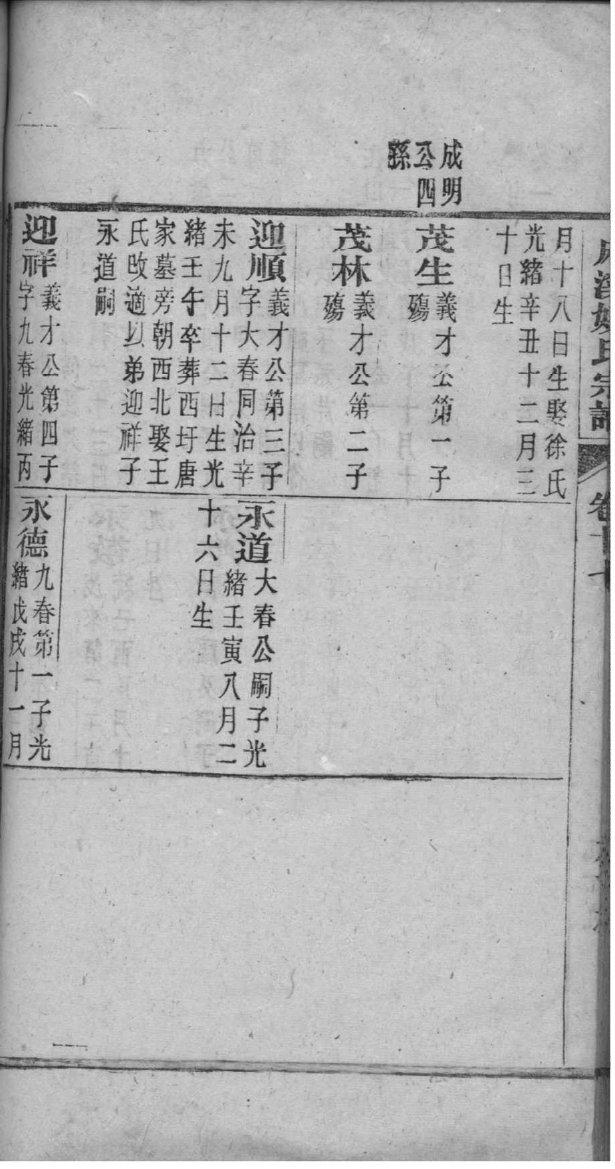 姚氏宗譜
卷十七
成明
公四
孫
月十八日生娶徐氏
光緒辛丑十二月三
十日生
茂生義才公第一子
殤
茂林義才公第二子
殤
迎順義才公第三子
字大春同治辛
未九月十二日生光
緒壬午卒葬西圩唐
家墓旁朝西北娶王
氏改適以弟迎祥子
永道嗣
迎祥義才公第四子
字九春光緒丙
永道大春公嗣子光
緒壬寅八月二
十六日生
永德九春第一子光
緒戊戌十一月